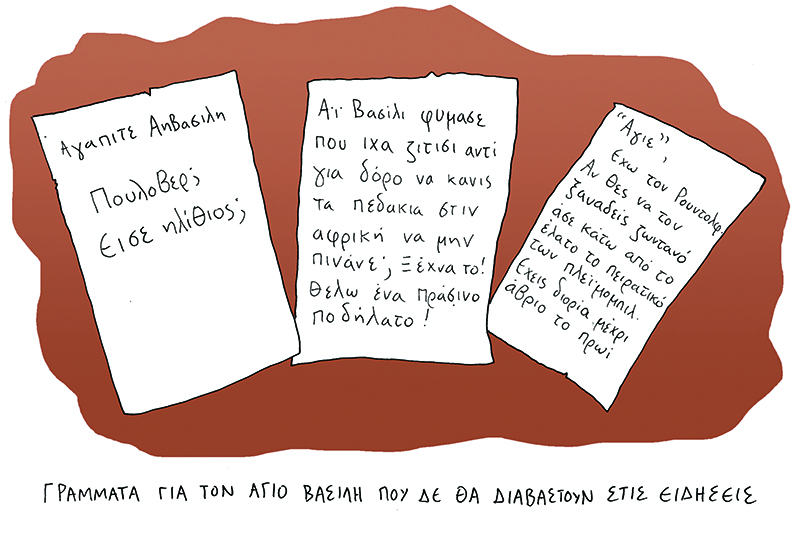 Αγαπιτε Αηβασιλη
Πουλοβερ;
Εισε ηλίθιος;
Αϊ Βασίλι θυμασε
που ιχα ζιτισι αντί
για δόρο να κανις
τα πεδακια στιν
αφρική να μην
πινάνε; Ξέχνα το!
Θελω ένα πράσινο
ποδήλατο!
"Αγιε",
Εχω τον Ρουντολφ.
Αν θες να τον
ξαναδείς ζωντανό
άσε κάτω από το
έλατο το πειρατικό
των πλεϊμομπιλ.
Εχεις διορία μέχρι
άβριο το πρωί
ΓΡΑΜΜΑΤΑ ΓΙΑ ΤΟΝ ΑΓΙΟ ΒΑΣΙΛΗ ΠΟΥ ΔΕ ΘΑ ΔΙΑΒΑΣΤΟΥΝ ΣΤΙΣ ΕΙΔΗΣΕΙΣ